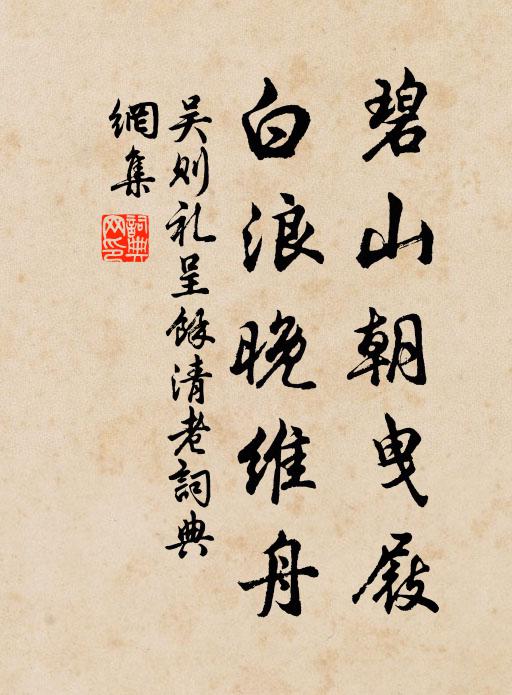 碧山朝曳屐
白浪晚維舟
吴则礼呈餘清老詞典
網集
詞典
网印